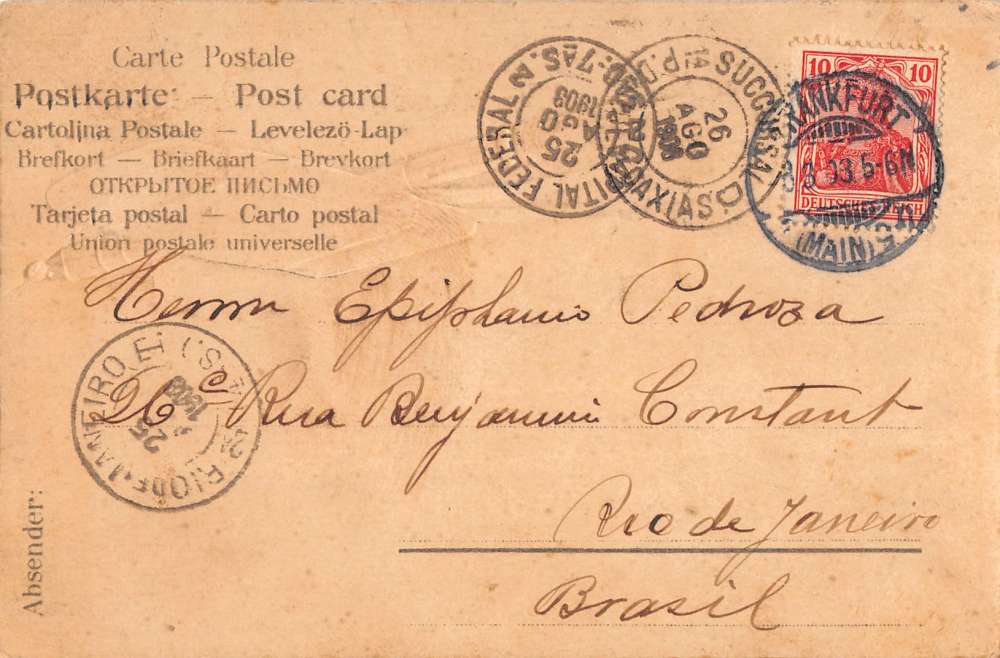 Carte Postale
Postkarte — Post card
Cartolina Postale — Levelező-Lap
Brefkort — Briefkaart — Brevkort
ОТКРЫТОЕ ПИСЬМО
Tarjeta postal — Carto postal
Union postale universelle
CAPITAL FEDERAL
25
AGO
1903
SUCCURSAL
26
AGO
1903
10 10
DEUTSCHES REICH
FRANKFURT
03.5-6N
(MAIN)
Herrn Epiphanio Pedroza
26 C Rua Benjamin Constant
Rio de Janeiro
Brasil
RIO DE JANEIRO
25
1903
Absender: